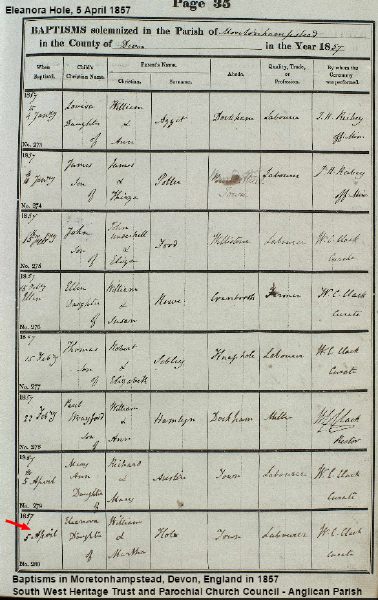 Page 35
Eleanora Hole, 5 April 1857
BAPTISMS solemnized in the Parish of Moretonhampstead
in the County of Devon in the Year 1857
When Baptized. Child's Christian Name. Parent's Name. Abode. Quality, Trade, or Profession. By whom the Ceremony was performed.
Christian. Surname.
1857
4 Jany
No. 273
Louisa
Daughter
of
William
&
Ann
Aggett
Labourer
off. Min.
1857
Jany
No. 274
James
Son
of
James
&
Thirza
Potter
Town
Labourer
off. Min.
1857
No. 275
John
Son
of
John
&
Eliza
Ford
Labourer
W. C. Clack
Curate
1857
No. 276
Ellen
Daughter
of
William
&
Susan
Howe
Cranbrook
Farmer
W. C. Clack
Curate
1857
15 Feby
No. 277
Thomas
Son
of
Robert
&
Elizabeth
Labourer
W. C. Clack
Curate
1857
22 Feby
No. 278
Son
of
William
&
Ann
Hamlyn
Miller
Rector
1857
5 April
No. 279
Mary
Ann
Daughter
of
Richard
&
Mary
Town
Labourer
W. C. Clack
Curate
1857
5 April
No. 280
Eleanora
Daughter
of
William
&
Martha
Hole
Town
Labourer
W. C. Clack
Curate
Baptisms in Moretonhampstead, Devon, England in 1857
South West Heritage Trust and Parochial Church Council - Anglican Parish